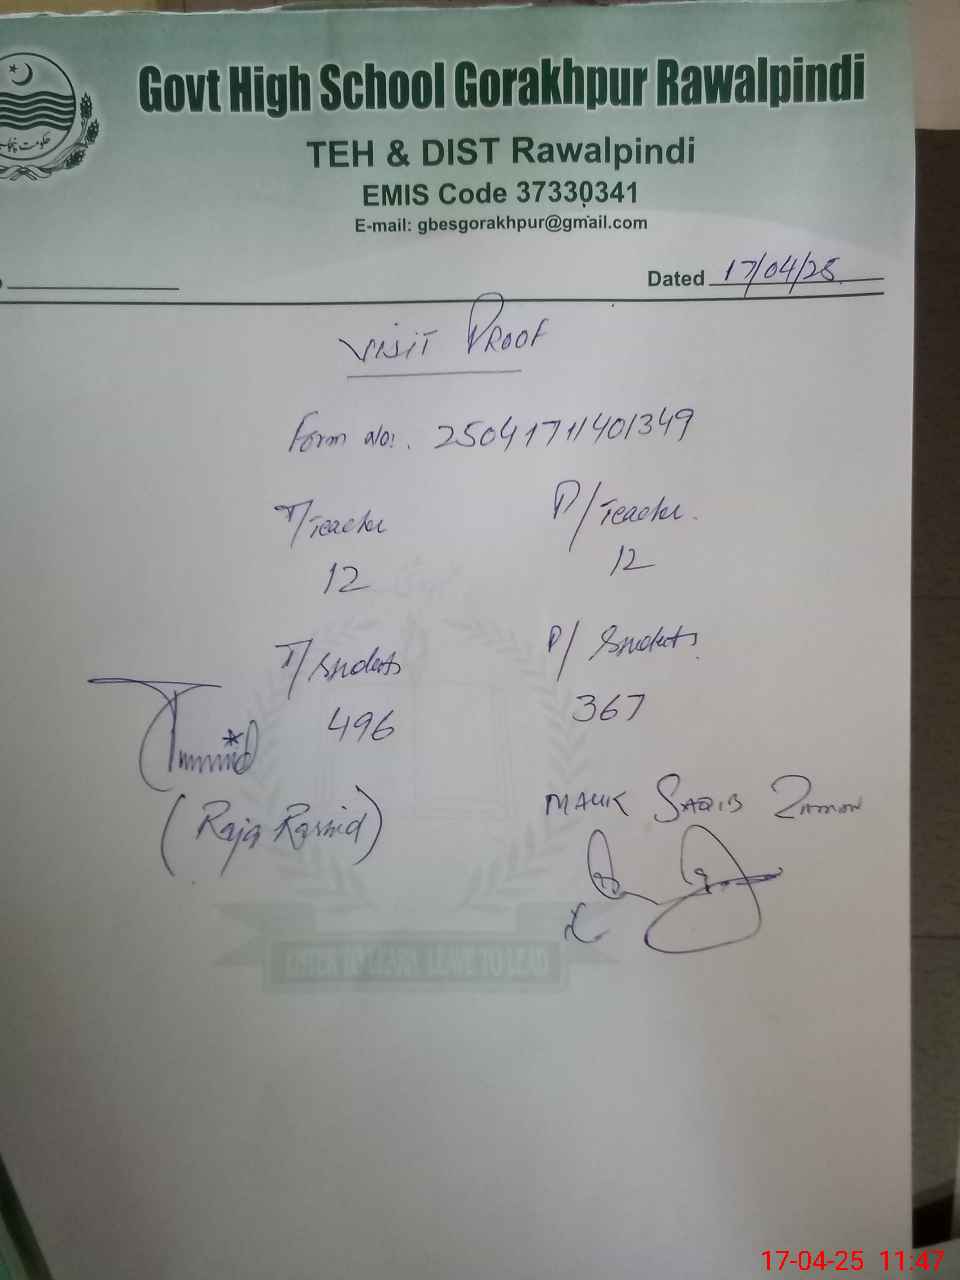 Govt High School Gorakhpur Rawalpindi
TEH & DIST Rawalpindi
EMIS Code 37330341
E-mail: gbesgorakhpur@gmail.com
Dated 17/04/25
VISIT PROOF
Form No: 25041711401349
T/Teacher P/Teacher
12 12
T/Students P/Students
496 367
(Raja Rashid) MALIK SAQIB ZAMAN
ENTER TO LEARN LEAVE TO LEAD
17-04-25 11:47